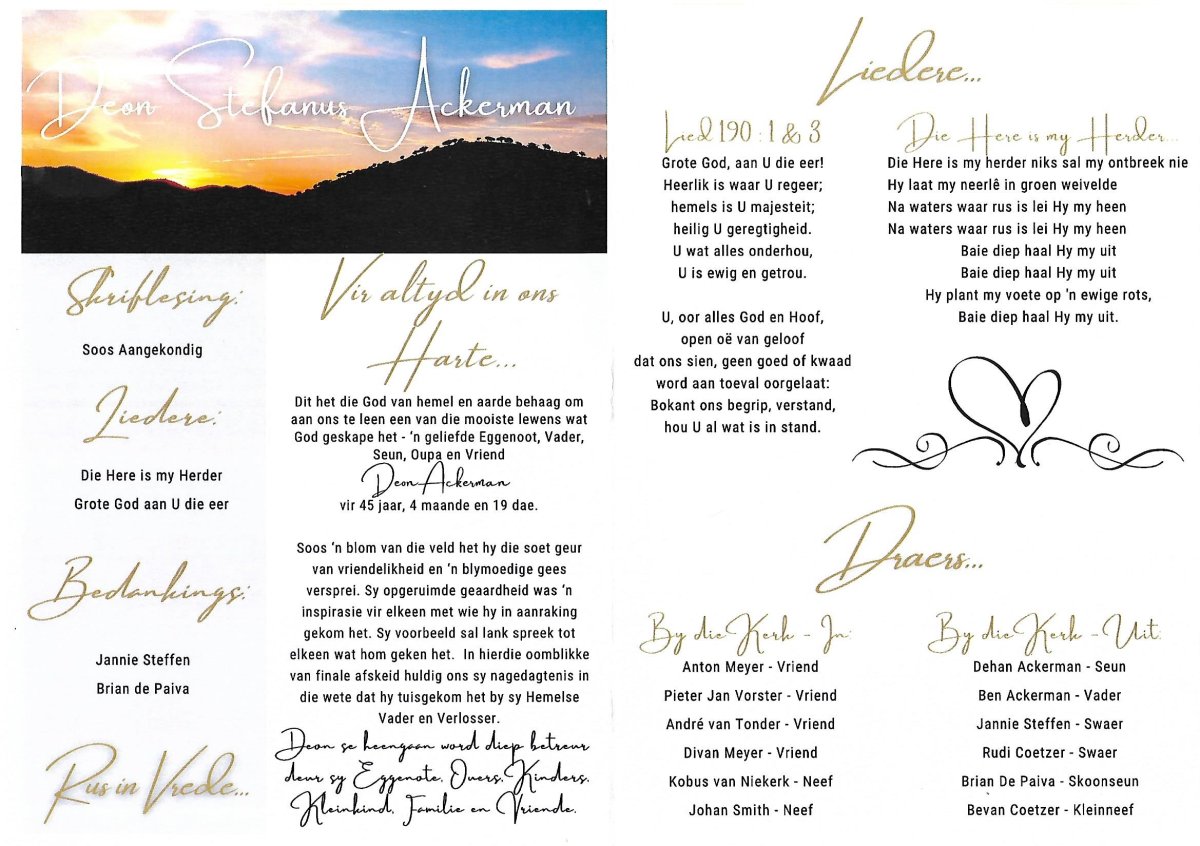 Deon Stefanus Ackerman
Skriflesing:
Soos Aangekondig
Liedere:
Die Here is my Herder
Grote God aan U die eer
Bedankings:
Jannie Steffen
Brian de Paiva
Rus in Vrede...
Vir altyd in ons
Harte...
Dit het die God van hemel en aarde behaag om
aan ons te leen een van die mooiste lewens wat
God geskape het - ‘n geliefde Eggenoot, Vader,
Seun, Oupa en Vriend
Deon Ackerman
vir 45 jaar, 4 maande en 19 dae.
Soos ‘n blom van die veld het hy die soet geur
van vriendelikheid en ‘n blymoedige gees
versprei. Sy opgeruimde geaardheid was ‘n
inspirasie vir elkeen met wie hy in aanraking
gekom het. Sy voorbeeld sal lank spreek tot
elkeen wat hom geken het. In hierdie oomblikke
van finale afskeid huldig ons sy nagedagtenis in
die wete dat hy tuisgekom het by sy Hemelse
Vader en Verlosser.
Deon se heengaan word diep betreur
deur sy Eggenote, Ouers, Kinders,
Kleinkind, Familie en Vriende.
Liedere...
Lied 190 : 1 & 3
Grote God, aan U die eer!
Heerlik is waar U regeer;
hemels is U majesteit;
heilig U geregtigheid.
U wat alles onderhou,
U is ewig en getrou.
U, oor alles God en Hoof,
open oë van geloof
dat ons sien, geen goed of kwaad
word aan toeval oorgelaat:
Bokant ons begrip, verstand,
hou U al wat is in stand.
Die Here is my Herder...
Die Here is my herder niks sal my ontbreek nie
Hy laat my neerlê in groen weivelde
Na waters waar rus is lei Hy my heen
Na waters waar rus is lei Hy my heen
Baie diep haal Hy my uit
Baie diep haal Hy my uit
Hy plant my voete op 'n ewige rots,
Baie diep haal Hy my uit.
Draers...
By die Kerk - In:
Anton Meyer - Vriend
Pieter Jan Vorster - Vriend
André van Tonder - Vriend
Divan Meyer - Vriend
Kobus van Niekerk - Neef
Johan Smith - Neef
By die Kerk - Uit:
Dehan Ackerman - Seun
Ben Ackerman - Vader
Jannie Steffen - Swaer
Rudi Coetzer - Swaer
Brian De Paiva - Skoonseun
Bevan Coetzer - Kleinneef